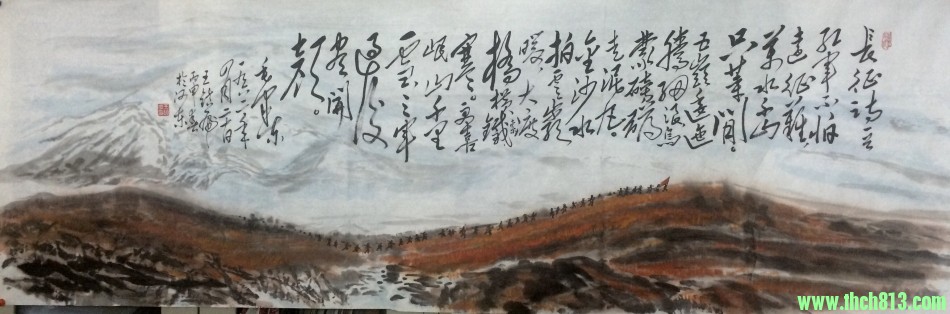 長征詩
紅軍不怕
遠征難
萬水千山
只等閒
五嶺逶迤
騰細浪烏
蒙磅礴
走泥丸
金沙水
拍雲崖
暖大渡
橋橫鐵索
寒更喜
岷山千里
雪三軍
過後
盡開
顏
毛澤東
丙申
www.thch813.com